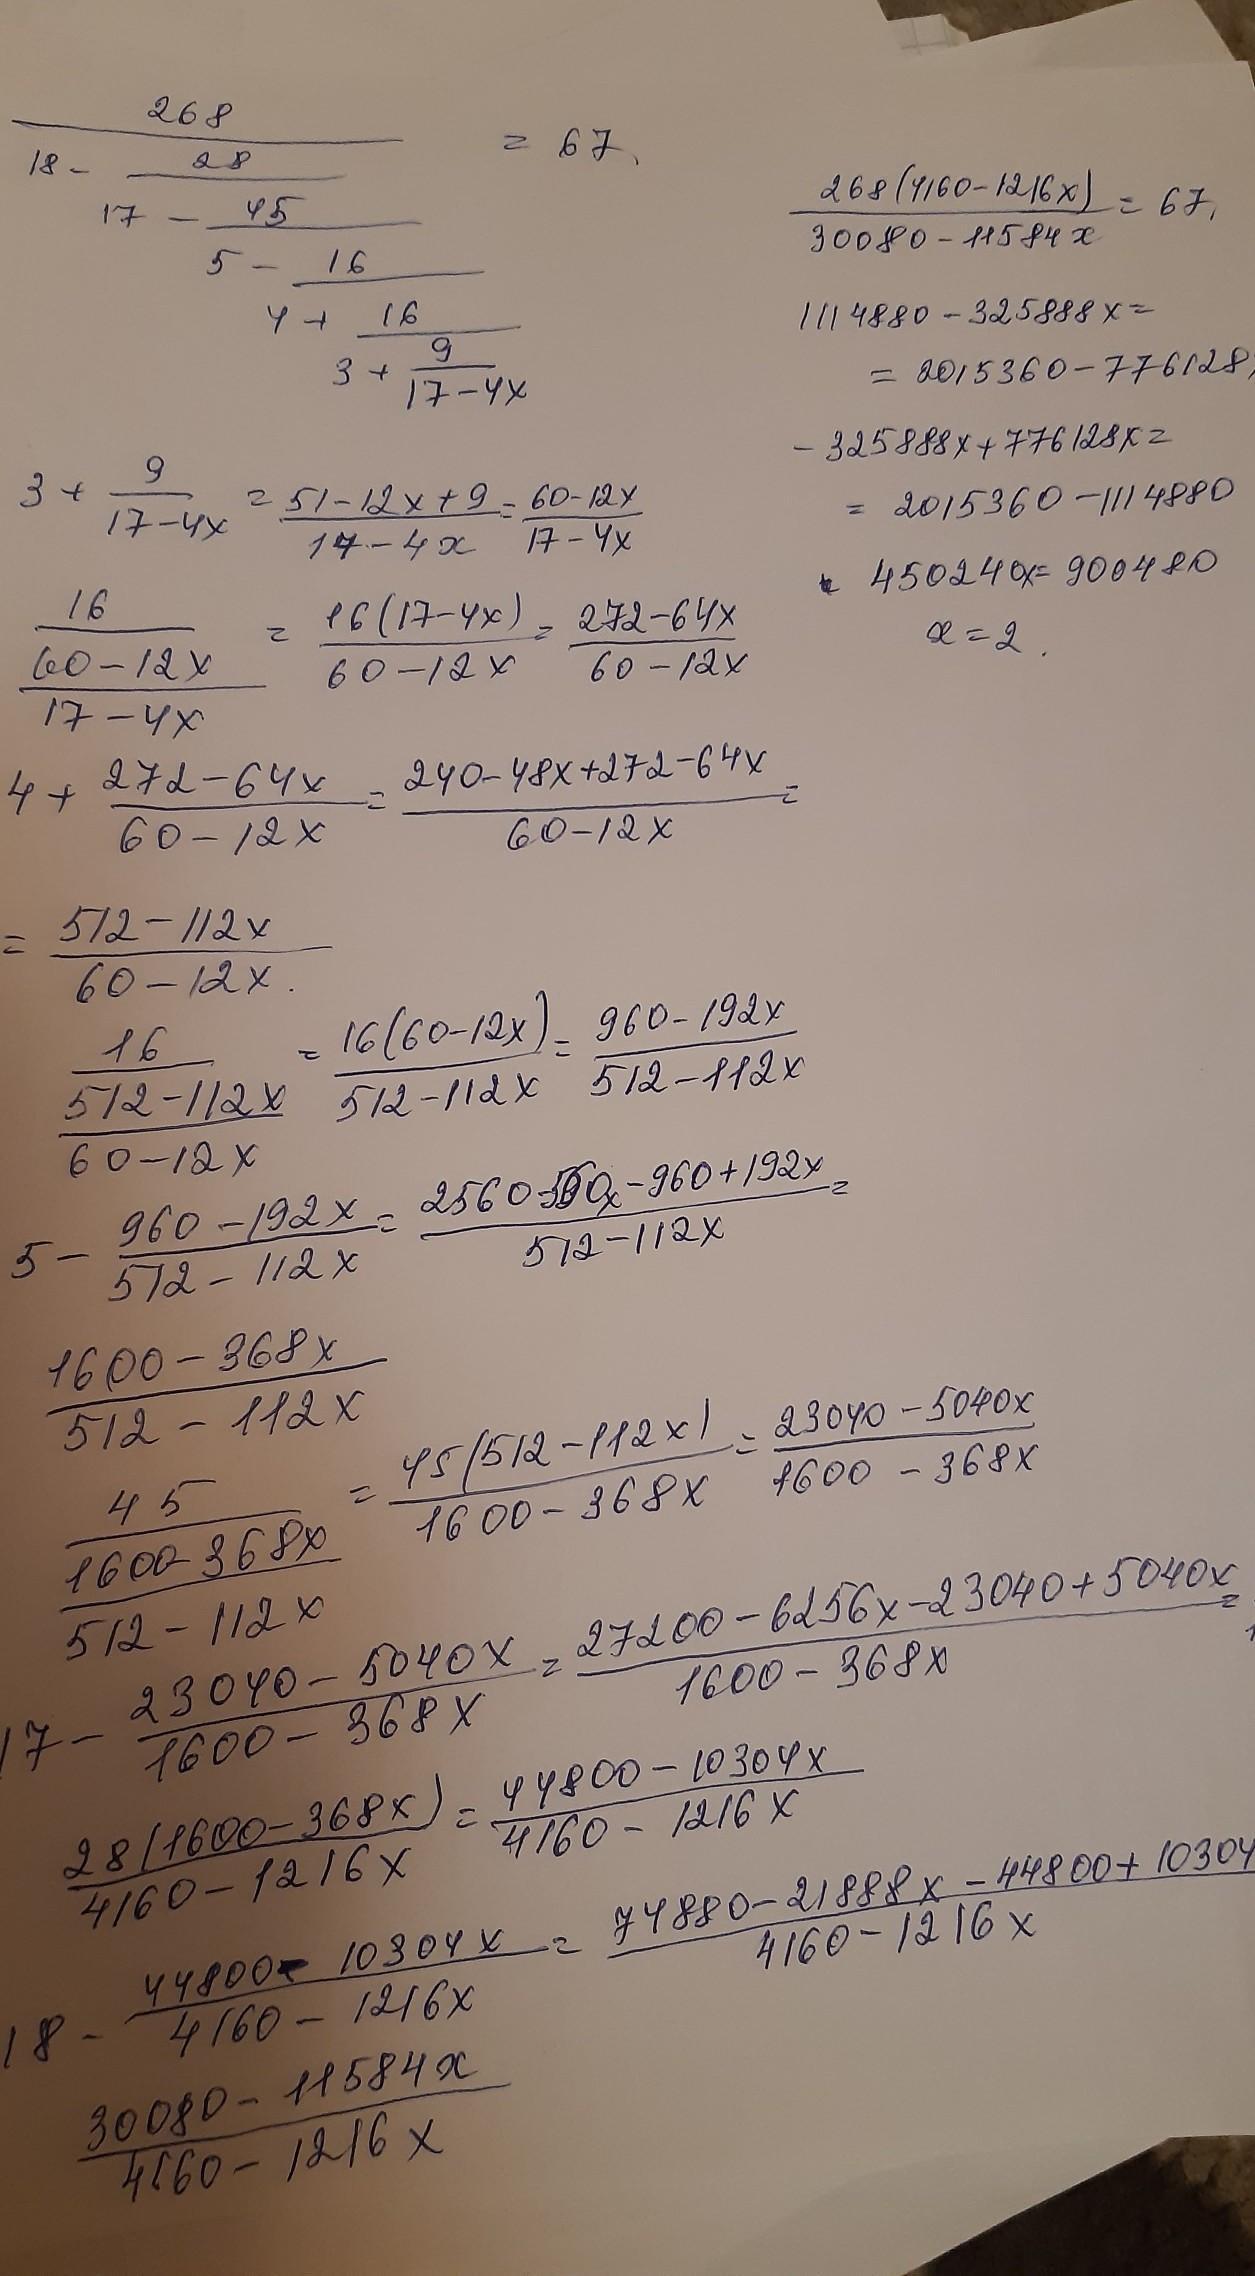 268
18 - 28 = 67,
17 - 45
5 - 16
4 + 16
3 + 9
17 - 4x
3 + 9/(17-4x) = (51-12x+9)/(17-4x) = (60-12x)/(17-4x)
16/((60-12x)/(17-4x)) = 16(17-4x)/(60-12x) = (272-64x)/(60-12x)
4 + (272-64x)/(60-12x) = (240-48x+272-64x)/(60-12x) =
= (512-112x)/(60-12x).
16/((512-112x)/(60-12x)) = 16(60-12x)/(512-112x) = (960-192x)/(512-112x)
5 - (960-192x)/(512-112x) = (2560-560x-960+192x)/(512-112x) =
(1600-368x)/(512-112x)
45/((1600-368x)/(512-112x)) = 45(512-112x)/(1600-368x) = (23040-5040x)/(1600-368x)
17 - (23040-5040x)/(1600-368x) = (27200-6256x-23040+5040x)/(1600-368x) =
28(1600-368x)/(4160-1216x) = (44800-10304x)/(4160-1216x)
18 - (44800-10304x)/(4160-1216x) = (74880-21888x-44800+10304)/(4160-1216x)
(30080-11584x)/(4160-1216x)
268(4160-1216x)/(30080-11584x) = 67,
1114880-325888x=
= 2015360-776128
-325888x+776128x=
= 2015360-1114880
450240x=900480
x=2.